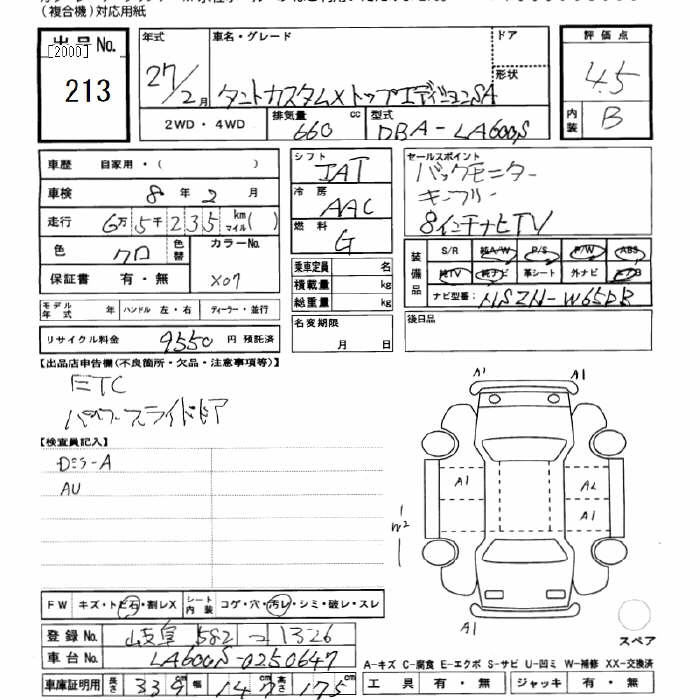 (複合機)対応用紙
出品No.
[2000]
213
年式
27/2月
車名・グレード
タントカスタムXトップエディションSA
ドア
形状
評価点
4.5
内装
B
2WD・4WD
排気量
660
cc
型式
DBA-LA600S
車歴 自家用・( )
車検 8年2月
走行 6万5千235 km マイル( )
色 クロ 色替
カラーNo.
X07
保証書 有・無
モデル年式 年 ハンドル 左・右 ディーラー・並行
リサイクル料金 9550 円 預託済
シフト IAT
冷房 AAC
燃料 G
乗車定員 名
積載量 kg
総重量 kg
名変期限
月 日
セールスポイント
バックモニター
キーフリー
8インチナビTV
装備品
S/R 純A/W P/S P/W ABS
純TV 純ナビ 革シート 外ナビ エアB
ナビ型番: NSZN-W65DB
後日品
【出品店申告欄(不良箇所・欠品・注意事項等)】
ETC
パワースライドドア
【検査員記入】
Dミラ-A
AU
A1 A1
A1 A2
A1
A1
W2
FW キズ・トビ石・割レX シート内装 コゲ・穴・汚レ・シミ・破レ・スレ
登録No. 岐阜 582 つ 1326
車台No. LA600S-0250647
車庫証明用 長さ 339 cm 幅 147 cm 高さ 175 cm
スペア
A-キズ C-腐食 E-エクボ S-サビ U-凹ミ W-補修 XX-交換済
工具 有・無 ジャッキ 有・無